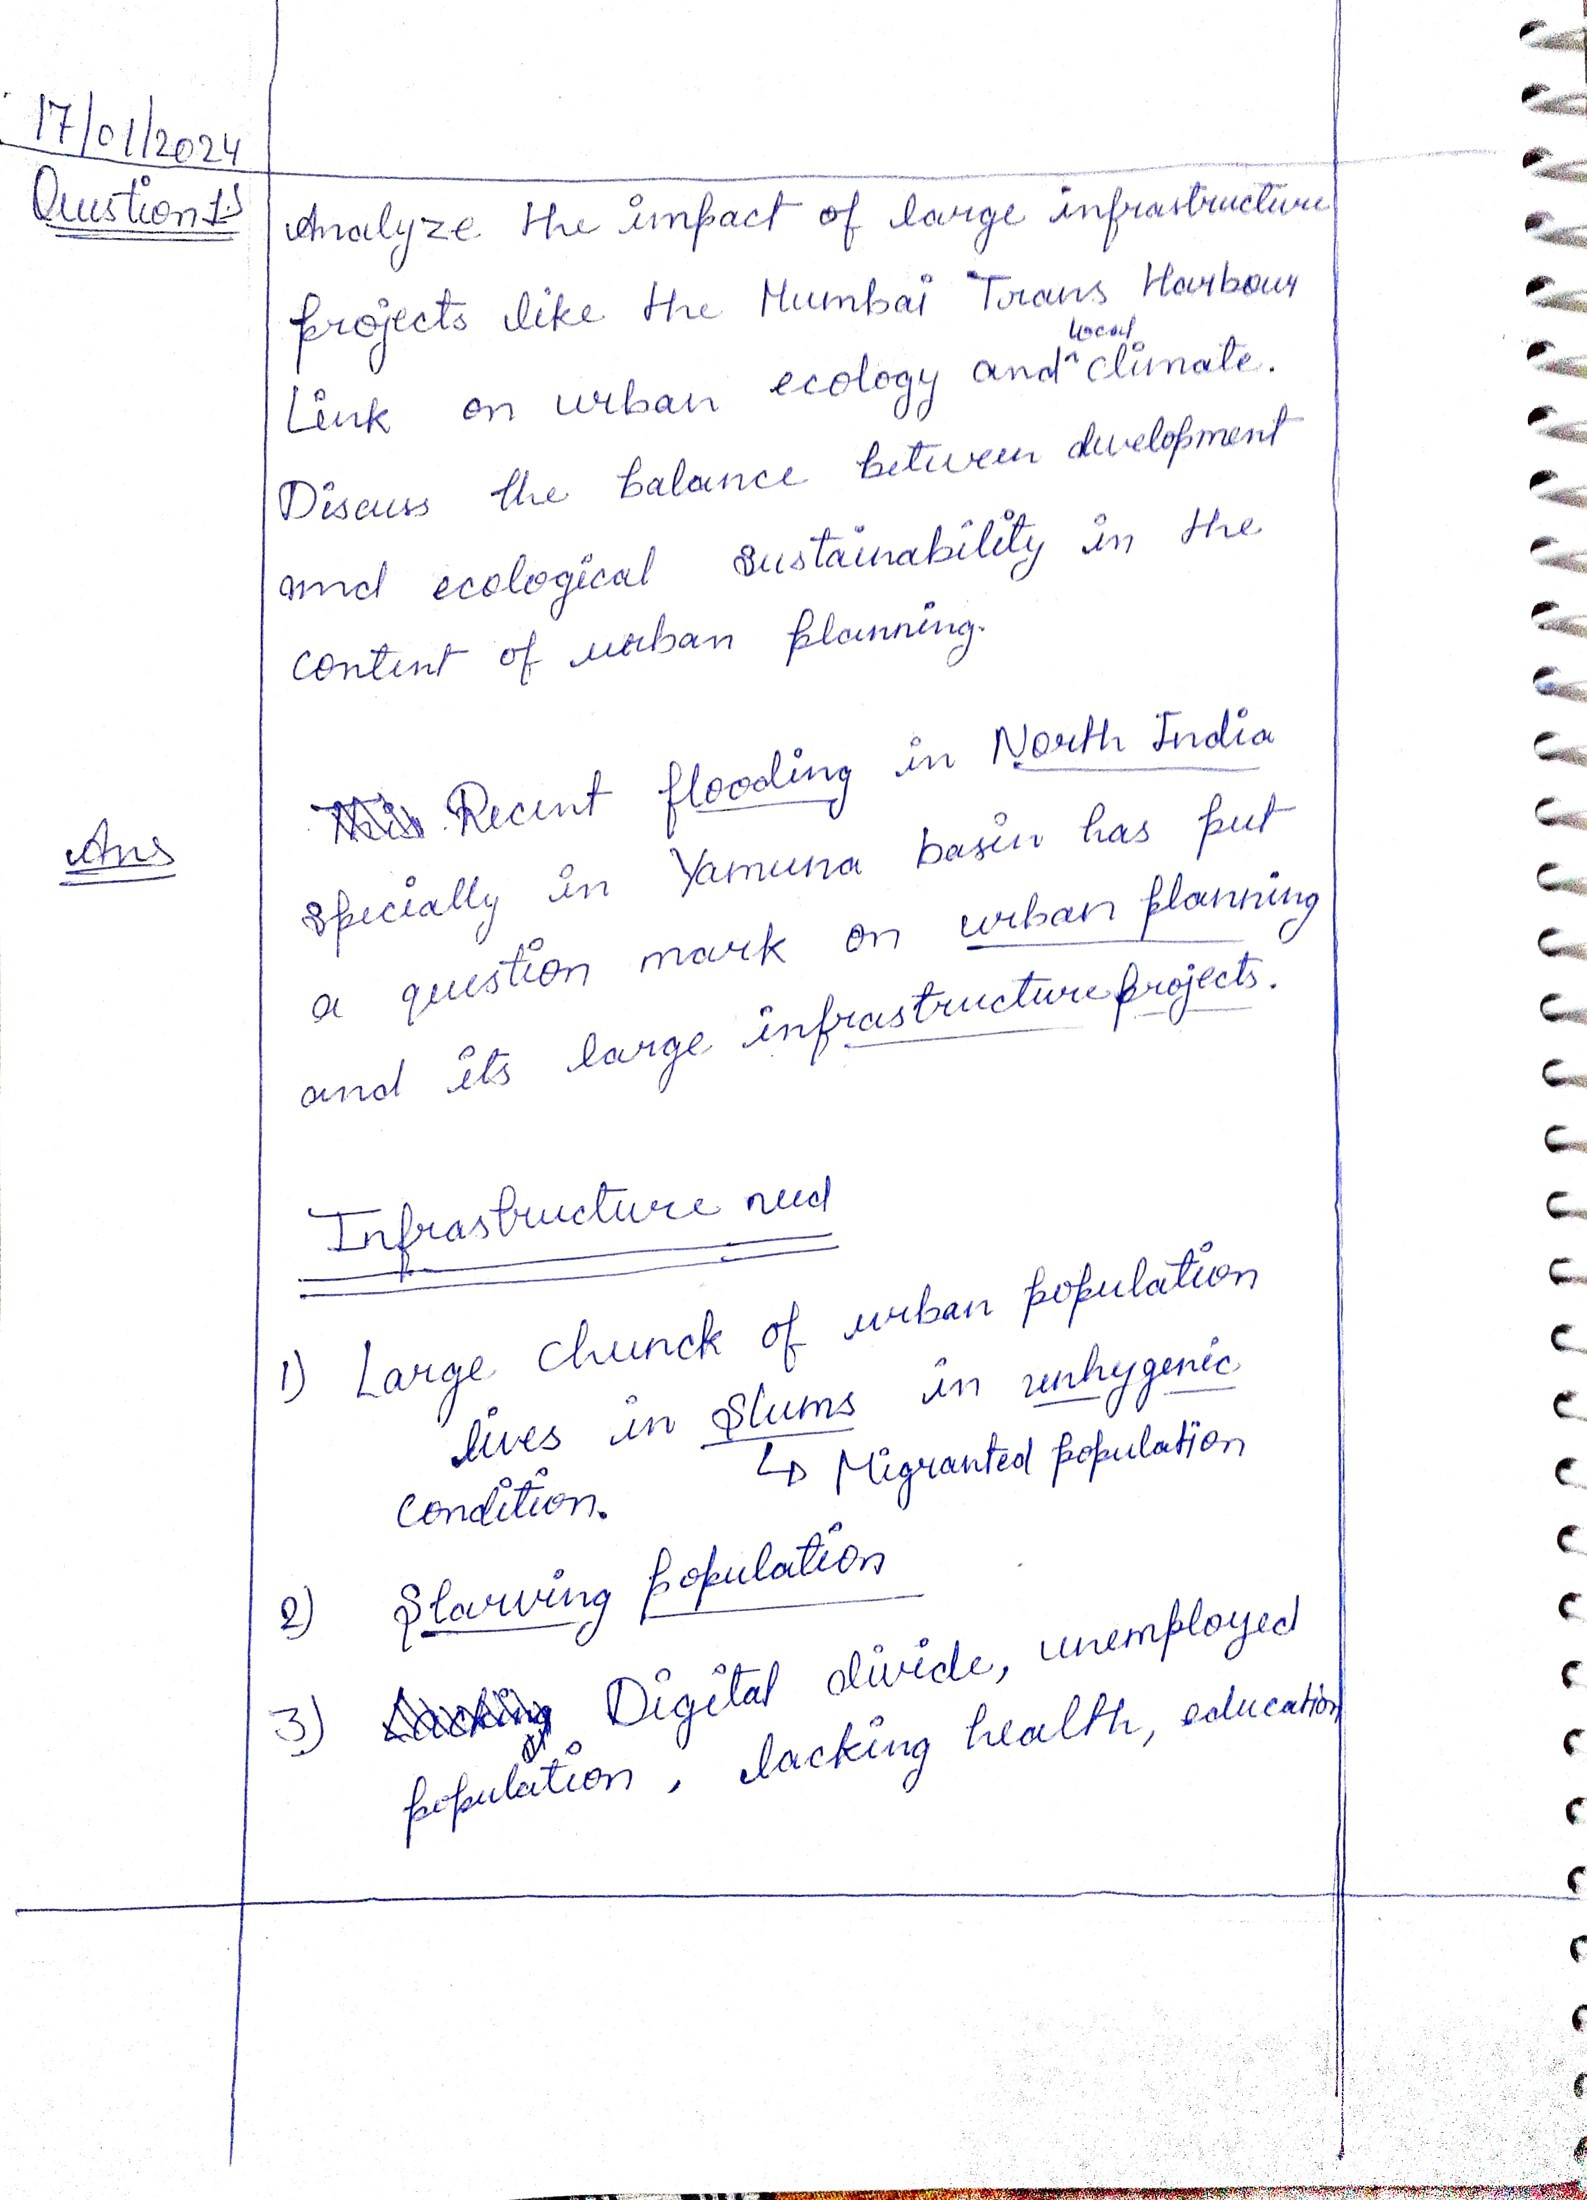 17/01/2024
Question 1:
Analyze the impact of large infrastructure
projects like the Mumbai Trans Harbour
Link on urban ecology and local climate.
Discuss the balance between development
and ecological sustainability in the
content of urban planning.
Ans
Recent flooding in North India
specially in Yamuna basin has put
a question mark on urban planning
and its large infrastructure projects.
Infrastructure need
1) Large chunck of urban population
lives in slums in unhygenic
↳ Migranted population
condition.
2) Starving population
3) Digital divide, unemployed
population, lacking health, education